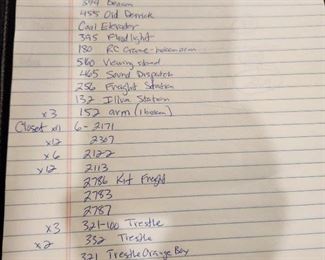 394 Beacon
455 Old Derrick
Coal Elevator
395 Floodlight
180 RC Crane - broken arm
560 Viewing Stand
465 Sound Dispatch
256 Freight Station
132 Illum Station
x3 152 arm (1 broken)
Closet x11 6-2171
x12 2307
x6 2122
x12 2113
2786 Kit Freight
2783
2787
x3 321-100 Trestle
x2 332 Trestle
321 Trestle Orange Box